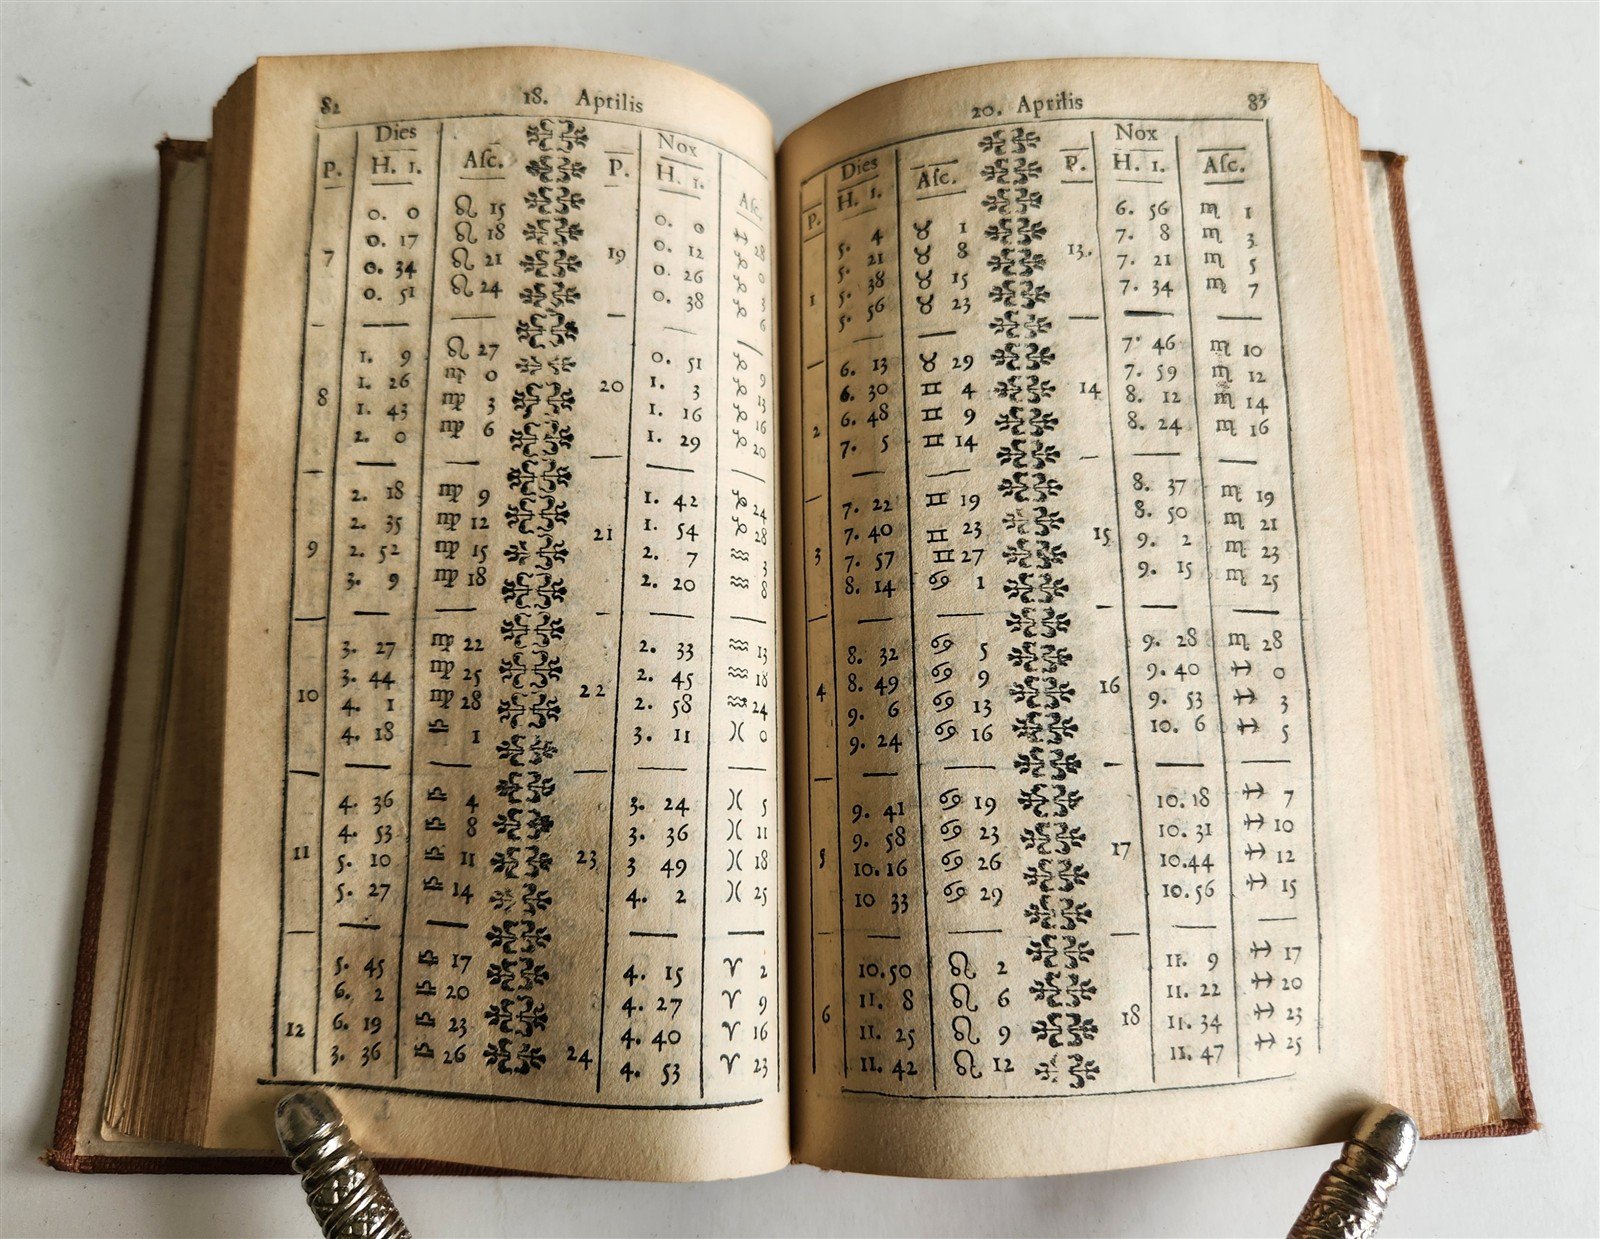 82 18. Aprilis
Dies Nox
P. H. I. Aſc. P. H. I. Aſc.
0. 0 ♌ 15 0. 0 ♐ 28
0. 17 ♌ 18 0. 12 ♑ 0
7 0. 34 ♌ 21 19 0. 26 ♑ 3
0. 51 ♌ 24 0. 38 ♑ 6
1. 9 ♌ 27 0. 51 ♑ 9
1. 26 ♍ 0 20 1. 3 ♑ 13
8 1. 43 ♍ 3 1. 16 ♑ 16
2. 0 ♍ 6 1. 29 ♑ 20
2. 18 ♍ 9 1. 42 ♑ 24
2. 35 ♍ 12 21 1. 54 ♑ 28
9 2. 52 ♍ 15 2. 7 ♒ 3
3. 9 ♍ 18 2. 20 ♒ 8
3. 27 ♍ 22 2. 33 ♒ 13
3. 44 ♍ 25 22 2. 45 ♒ 18
10 4. 1 ♍ 28 2. 58 ♒ 24
4. 18 ♎ 1 3. 11 ♓ 0
4. 36 ♎ 4 3. 24 ♓ 5
4. 53 ♎ 8 3. 36 ♓ 11
11 5. 10 ♎ 11 23 3 49 ♓ 18
5. 27 ♎ 14 4. 2 ♓ 25
5. 45 ♎ 17 4. 15 ♈ 2
6. 2 ♎ 20 4. 27 ♈ 9
12 6. 19 ♎ 23 4. 40 ♈ 16
3. 36 ♎ 26 24 4. 53 ♈ 23
20. Aprilis 83
Dies Nox
P. H. I. Aſc. P. H. I. Aſc.
5. 4 ♉ 1 6. 56 ♏ 1
5. 21 ♉ 8 13. 7. 8 ♏ 3
1 5. 38 ♉ 15 7. 21 ♏ 5
5. 56 ♉ 23 7. 34 ♏ 7
6. 13 ♉ 29 7. 46 ♏ 10
6. 30 ♊ 4 14 7. 59 ♏ 12
2 6. 48 ♊ 9 8. 12 ♏ 14
7. 5 ♊ 14 8. 24 ♏ 16
7. 22 ♊ 19 8. 37 ♏ 19
7. 40 ♊ 23 8. 50 ♏ 21
3 7. 57 ♊ 27 15 9. 2 ♏ 23
8. 14 ♋ 1 9. 15 ♏ 25
8. 32 ♋ 5 9. 28 ♏ 28
4 8. 49 ♋ 9 9. 40 ♐ 0
9. 6 ♋ 13 16 9. 53 ♐ 3
9. 24 ♋ 16 10. 6 ♐ 5
9. 41 ♋ 19 10. 18 ♐ 7
9. 58 ♋ 23 10. 31 ♐ 10
5 10. 16 ♋ 26 17 10. 44 ♐ 12
10 33 ♋ 29 10. 56 ♐ 15
10. 50 ♌ 2 11. 9 ♐ 17
11. 8 ♌ 6 11. 22 ♐ 20
6 11. 25 ♌ 9 18 11. 34 ♐ 23
11. 42 ♌ 12 11. 47 ♐ 25